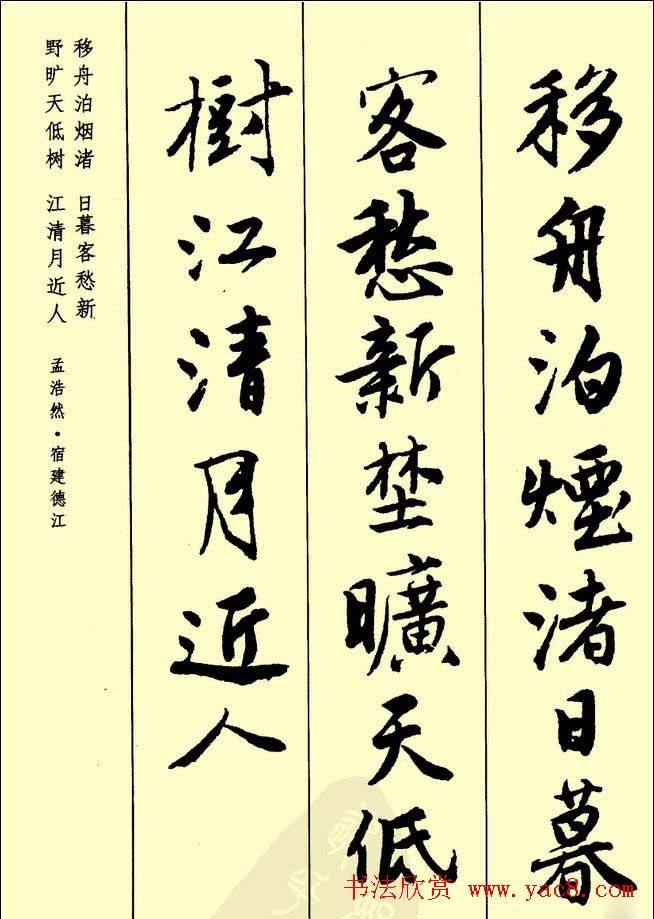 移舟泊煙渚日暮
客愁新埜曠天低
樹江清月近人
移舟泊烟渚 日暮客愁新
野旷天低树 江清月近人
孟浩然·宿建德江
书法欣赏 www.yac8.com